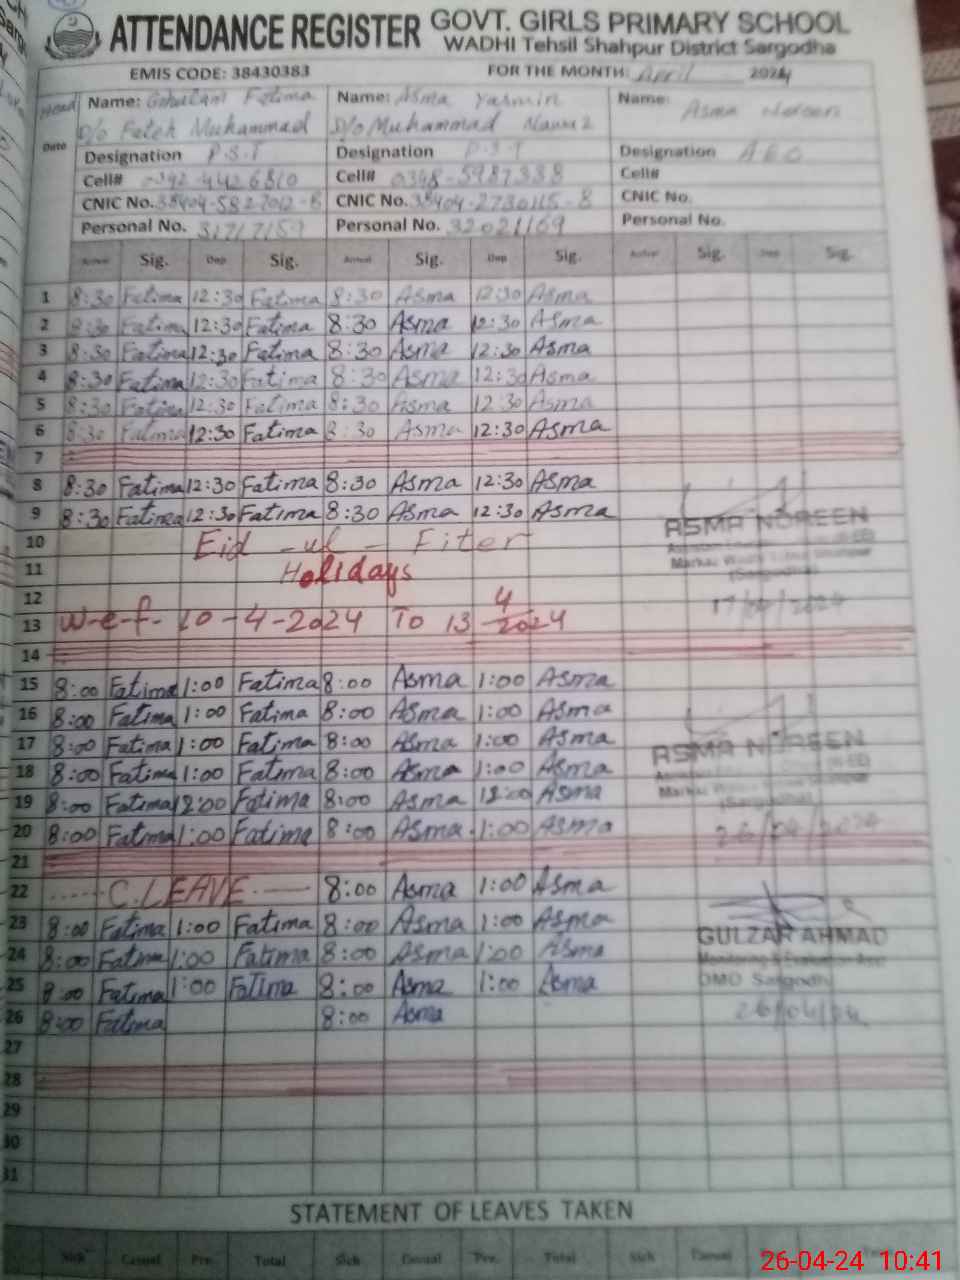 ATTENDANCE REGISTER GOVT. GIRLS PRIMARY SCHOOL
WADHI Tehsil Shahpur District Sargodha
EMIS CODE: 38430383 FOR THE MONTH: April 2024
Head Name: Fatima Name: Asma Yasmin Name: Asma Noreen
D/o Fateh Muhammad D/o Muhammad
Date Designation P.S.T Designation P.S.T Designation A E O
Cell# 0342-4426810 Cell# 0348-5987338 Cell#
CNIC No. CNIC No. CNIC No.
Personal No. Personal No. 32021169 Personal No.
Arrival Sig. Dep Sig. Arrival Sig. Dep Sig. Arrival Sig. Dep Sig.
1 8:30 Fatima 12:30 Fatima 8:30 Asma 12:30 Asma
2 8:30 Fatima 12:30 Fatima 8:30 Asma 12:30 Asma
3 8:30 Fatima 12:30 Fatima 8:30 Asma 12:30 Asma
4 8:30 Fatima 12:30 Fatima 8:30 Asma 12:30 Asma
5 8:30 Fatima 12:30 Fatima 8:30 Asma 12:30 Asma
6 8:30 Fatima 12:30 Fatima 8:30 Asma 12:30 Asma
7
8 8:30 Fatima 12:30 Fatima 8:30 Asma 12:30 Asma
9 8:30 Fatima 12:30 Fatima 8:30 Asma 12:30 Asma
ASMA NOREEN
10 Eid - ul - Fiter
11 Holidays
(Sargodha)
12
17/04/2024
13 w-e-f- 10-4-2024 To 13 4/2024
14
15 8:00 Fatima 1:00 Fatima 8:00 Asma 1:00 Asma
16 8:00 Fatima 1:00 Fatima 8:00 Asma 1:00 Asma
17 8:00 Fatima 1:00 Fatima 8:00 Asma 1:00 Asma
ASMA NOREEN
18 8:00 Fatima 1:00 Fatima 8:00 Asma 1:00 Asma
19 8:00 Fatima 12:00 Fatima 8:00 Asma 12:00 Asma
(Sargodha)
20 8:00 Fatima 1:00 Fatima 8:00 Asma 1:00 Asma
26/04/2024
21
22 C.LEAVE 8:00 Asma 1:00 Asma
23 8:00 Fatima 1:00 Fatima 8:00 Asma 1:00 Asma
GULZAR AHMAD
24 8:00 Fatima 1:00 Fatima 8:00 Asma 1:00 Asma
Monitoring & Evaluation
25 8:00 Fatima 1:00 Fatima 8:00 Asma 1:00 Asma
DMO Sargodha
26 8:00 Fatima 8:00 Asma
26/04/24
27
28
29
30
31
STATEMENT OF LEAVES TAKEN
Sick Casual Prv. Total Sick Casual Prv. Total Sick Casual
26-04-24 10:41